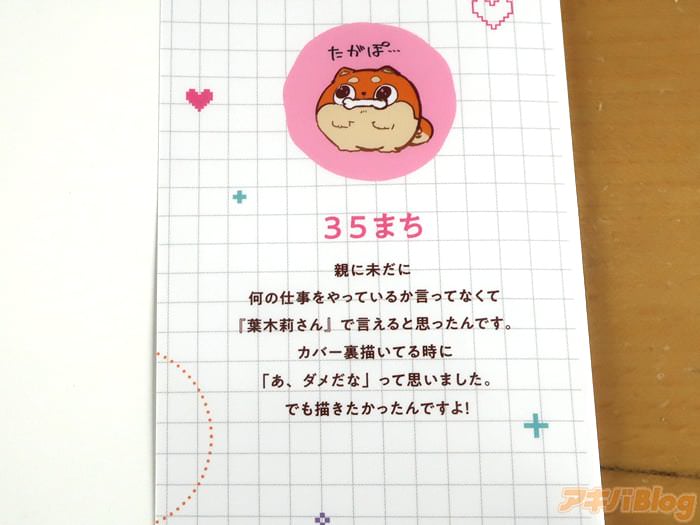 たがぽ…
35まち
親に未だに
何の仕事をやっているか言ってなくて
『葉木莉さん』で言えると思ったんです。
カバー裏描いてる時に
「あ、ダメだな」って思いました。
でも描きたかったんですよ!
アキバBlog